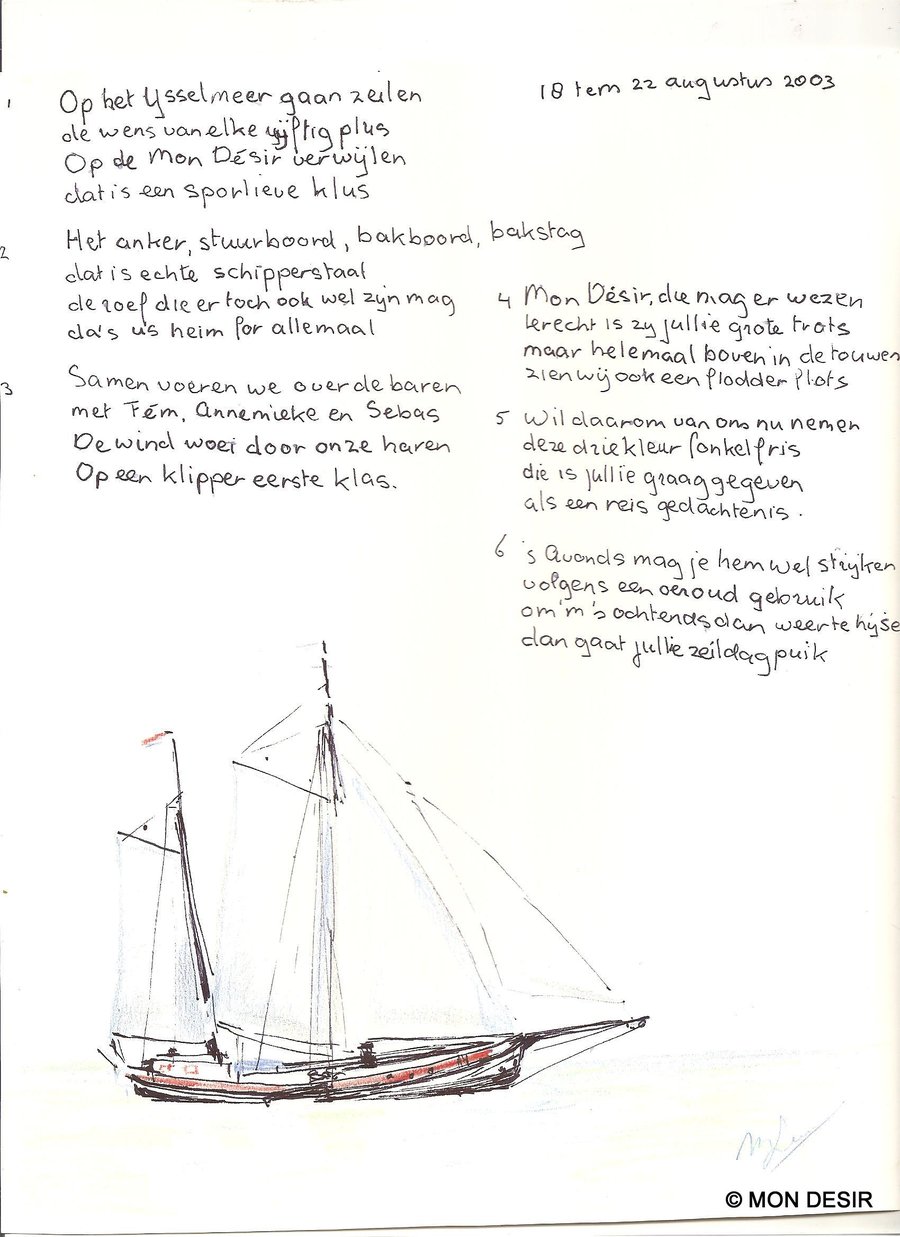 18 tem 22 augustus 2003
1
Op het Ysselmeer gaan zeilen
de wens van elke vijftig plus
Op de Mon Désir verwijlen
dat is een sportieve klus
2
Het anker, stuurboord, bakboord, bakstag
dat is echte schipperstaal
de roef die er toch ook wel zijn mag
da's us heim for allemaal
3
Samen voeren we over de baren
met Fém, Annemieke en Sebas
De wind woei door onze haren
Op een klipper eerste klas.
4 Mon Désir, die mag er wezen
terecht is zy jullie grote trots
maar helemaal boven in de touwen
zien wij ook een flodder flots
5 Wil daarom van ons nu nemen
deze driekleur fonkelfris
die is jullie graag gegeven
als een reis gedachtenis.
6 's Avonds mag je hem wel strijken
volgens een oeroud gebruik
om 'm 's ochtends dan weer te hijse
dan gaat jullie zeildag puik
© MON DESIR